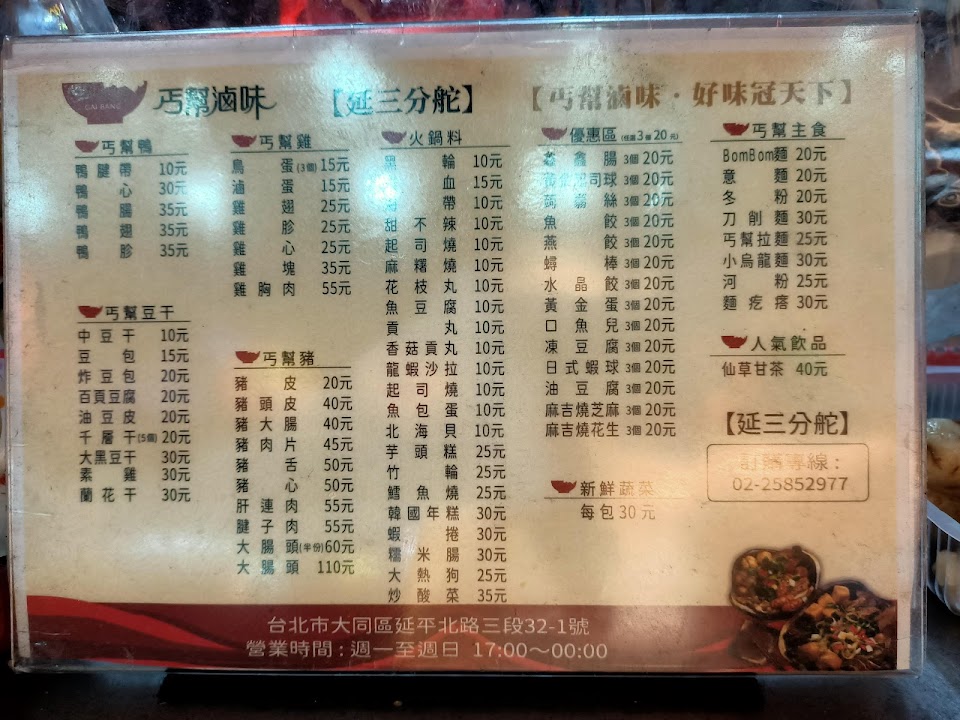 GAI BANG
丐幫滷味
【延三分舵】
【丐幫滷味・好味冠天下】
丐幫鴨
鴨腱帶 10元
鴨心 30元
鴨腸 35元
鴨翅 35元
鴨胗 35元
丐幫豆干
中豆干 10元
豆包 15元
炸豆包 20元
百頁豆腐 20元
油豆皮 20元
千層干(5個) 20元
大黑豆干 30元
素雞 30元
蘭花干 30元
丐幫雞
鳥蛋(3個) 15元
滷蛋 15元
雞翅 25元
雞胗 25元
雞心 25元
雞塊 35元
雞胸肉 55元
丐幫豬
豬皮 20元
豬頭皮 40元
豬大腸 40元
豬肉片 45元
豬舌 50元
豬心 50元
肝連肉 55元
腱子肉 55元
大腸頭(半份) 60元
大腸頭 110元
火鍋料
黑輪 10元
血 15元
帶 10元
甜不辣 10元
起司燒 10元
麻糬燒 10元
花枝丸 10元
魚豆腐 10元
貢丸 10元
香菇貢丸 10元
龍蝦沙拉 10元
起司燒 10元
魚包蛋 10元
北海貝 10元
芋頭糕 25元
竹輪 25元
鱈魚燒 25元
韓國年糕 30元
蝦捲 30元
糯米腸 30元
大熱狗 25元
炒酸菜 35元
優惠區(任選3個20元)
鑫鑫腸 3個 20元
司球 3個 20元
蒟蒻絲 3個 20元
魚餃 3個 20元
燕餃 3個 20元
蟳棒 3個 20元
水晶餃 3個 20元
黃金蛋 3個 20元
口魚兒 3個 20元
凍豆腐 3個 20元
日式蝦球 3個 20元
油豆腐 3個 20元
麻吉燒芝麻 3個 20元
麻吉燒花生 3個 20元
新鮮蔬菜
每包30元
丐幫主食
BomBom麵 20元
意麵 20元
冬粉 20元
刀削麵 30元
丐幫拉麵 25元
小烏龍麵 30元
河粉 25元
麵疙瘩 30元
人氣飲品
仙草甘茶 40元
【延三分舵】
訂購專線：
02-25852977
台北市大同區延平北路三段32-1號
營業時間：週一至週日 17:00～00:00